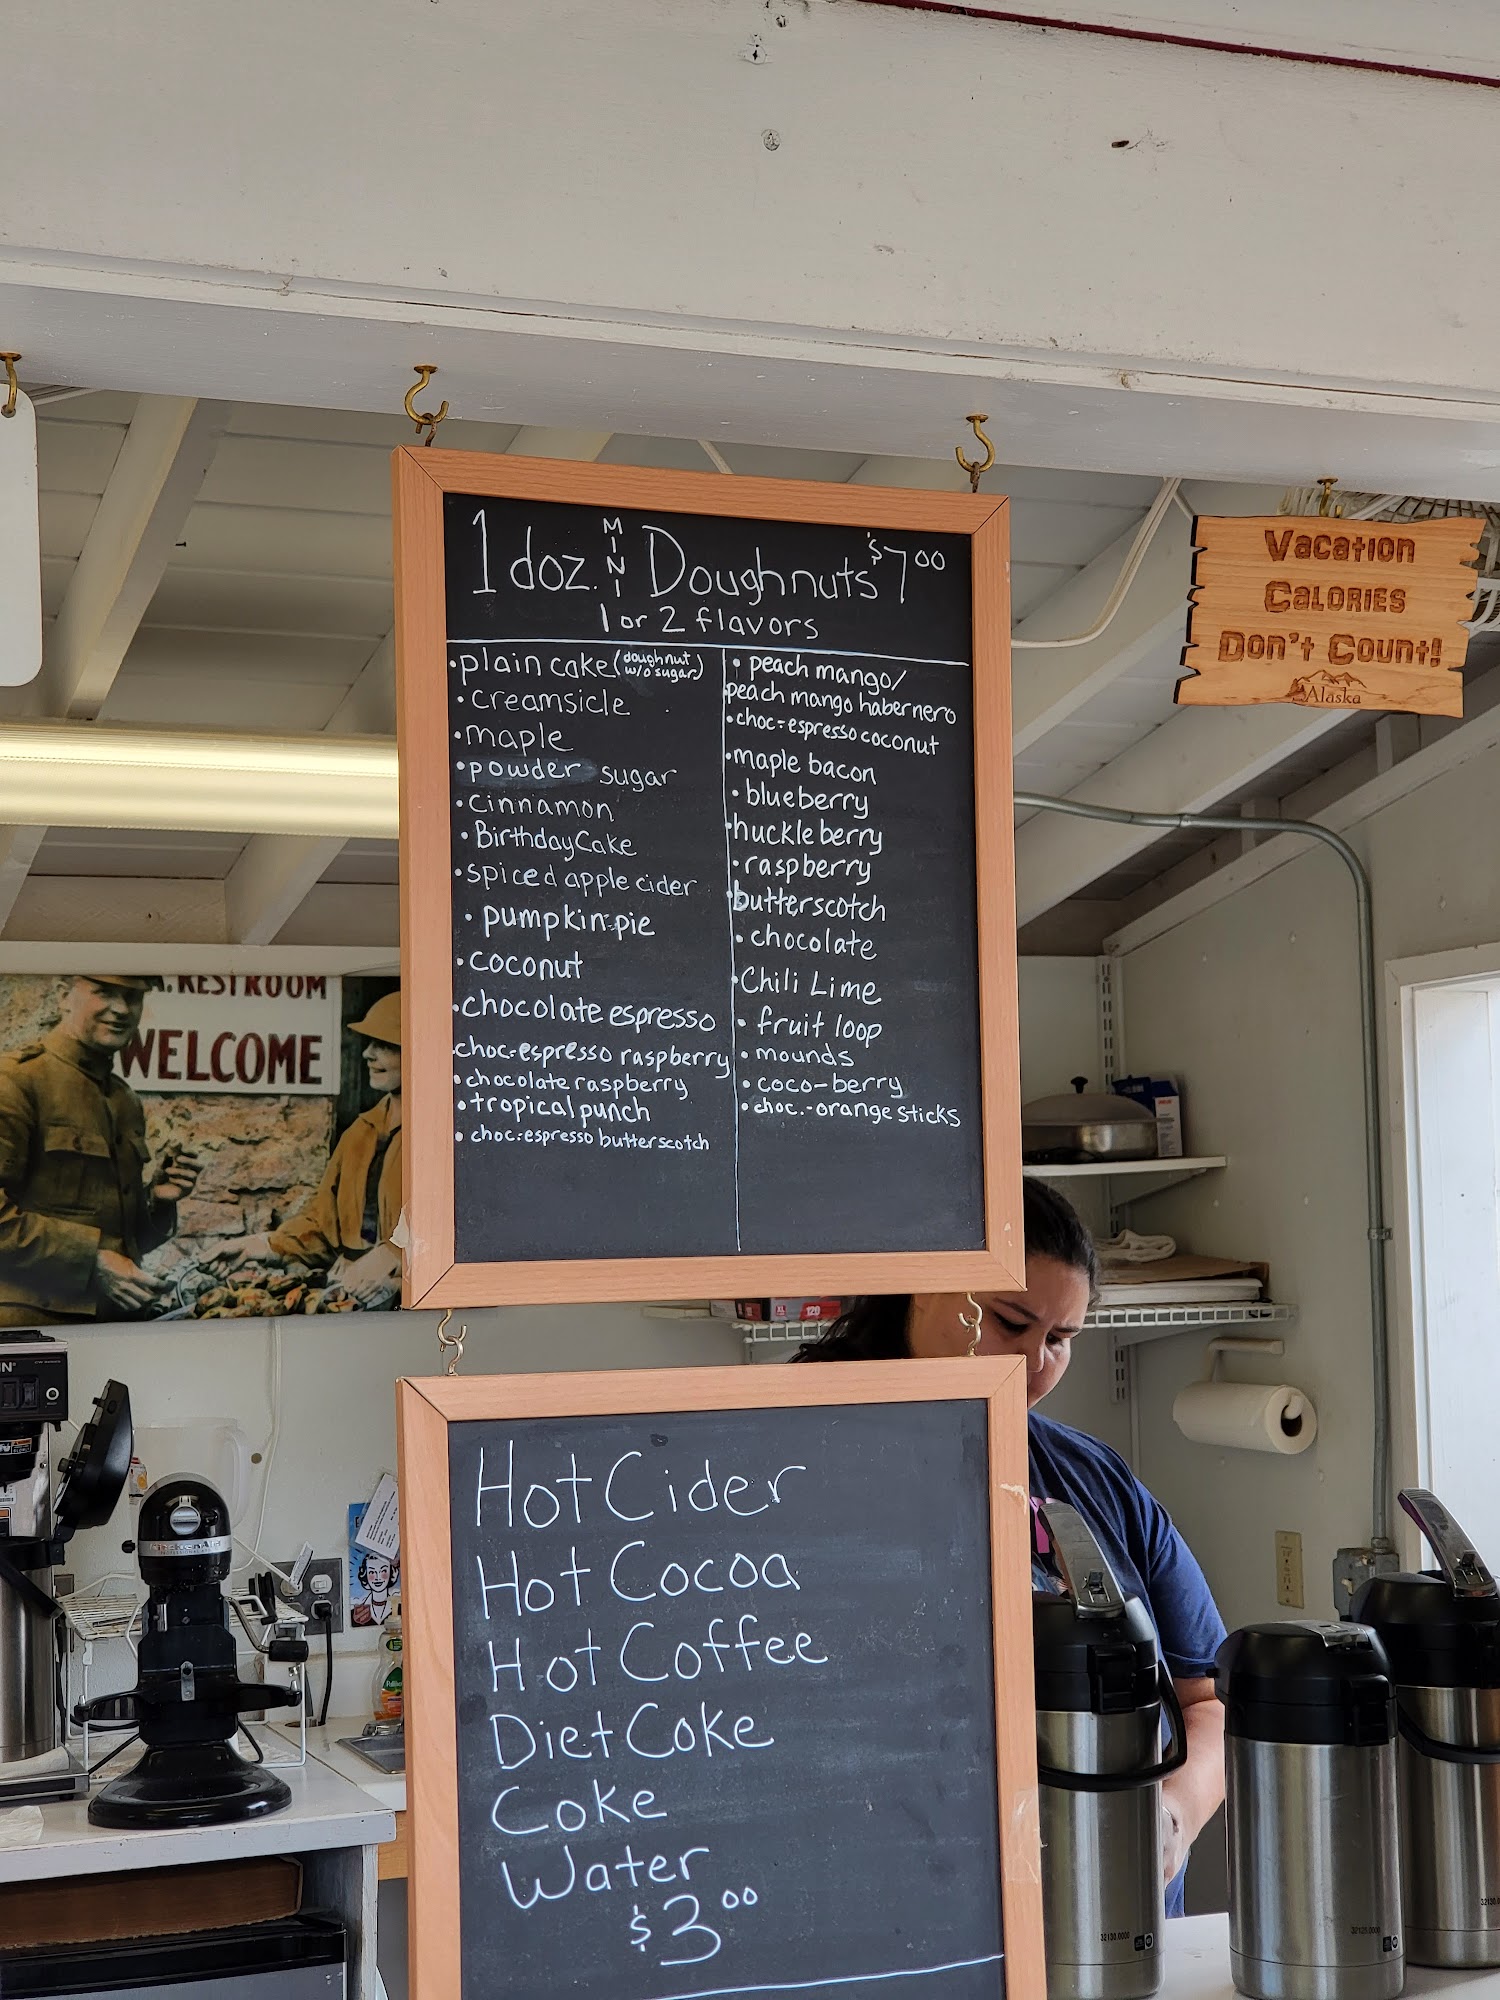 1 doz. MINI Doughnuts $7.00
1 or 2 flavors
• plain cake (doughnut w/o sugar)
• creamsicle
• maple
• powder sugar
• cinnamon
• Birthday Cake
• spiced apple cider
• pumpkin pie
• coconut
• chocolate espresso
• choc.-espresso raspberry
• chocolate raspberry
• tropical punch
• choc.-espresso butterscotch
• peach mango/
peach mango habernero
• choc.-espresso coconut
• maple bacon
• blueberry
• huckleberry
• raspberry
• butterscotch
• chocolate
• Chili Lime
• fruit loop
• mounds
• coco-berry
• choc.-orange sticks
Hot Cider
Hot Cocoa
Hot Coffee
Diet Coke
Coke
Water
$3.00
Vacation
Calories
Don't Count!
Alaska
RESTROOM
WELCOME
KitchenAid
XL
120
32130.0000
32125.000